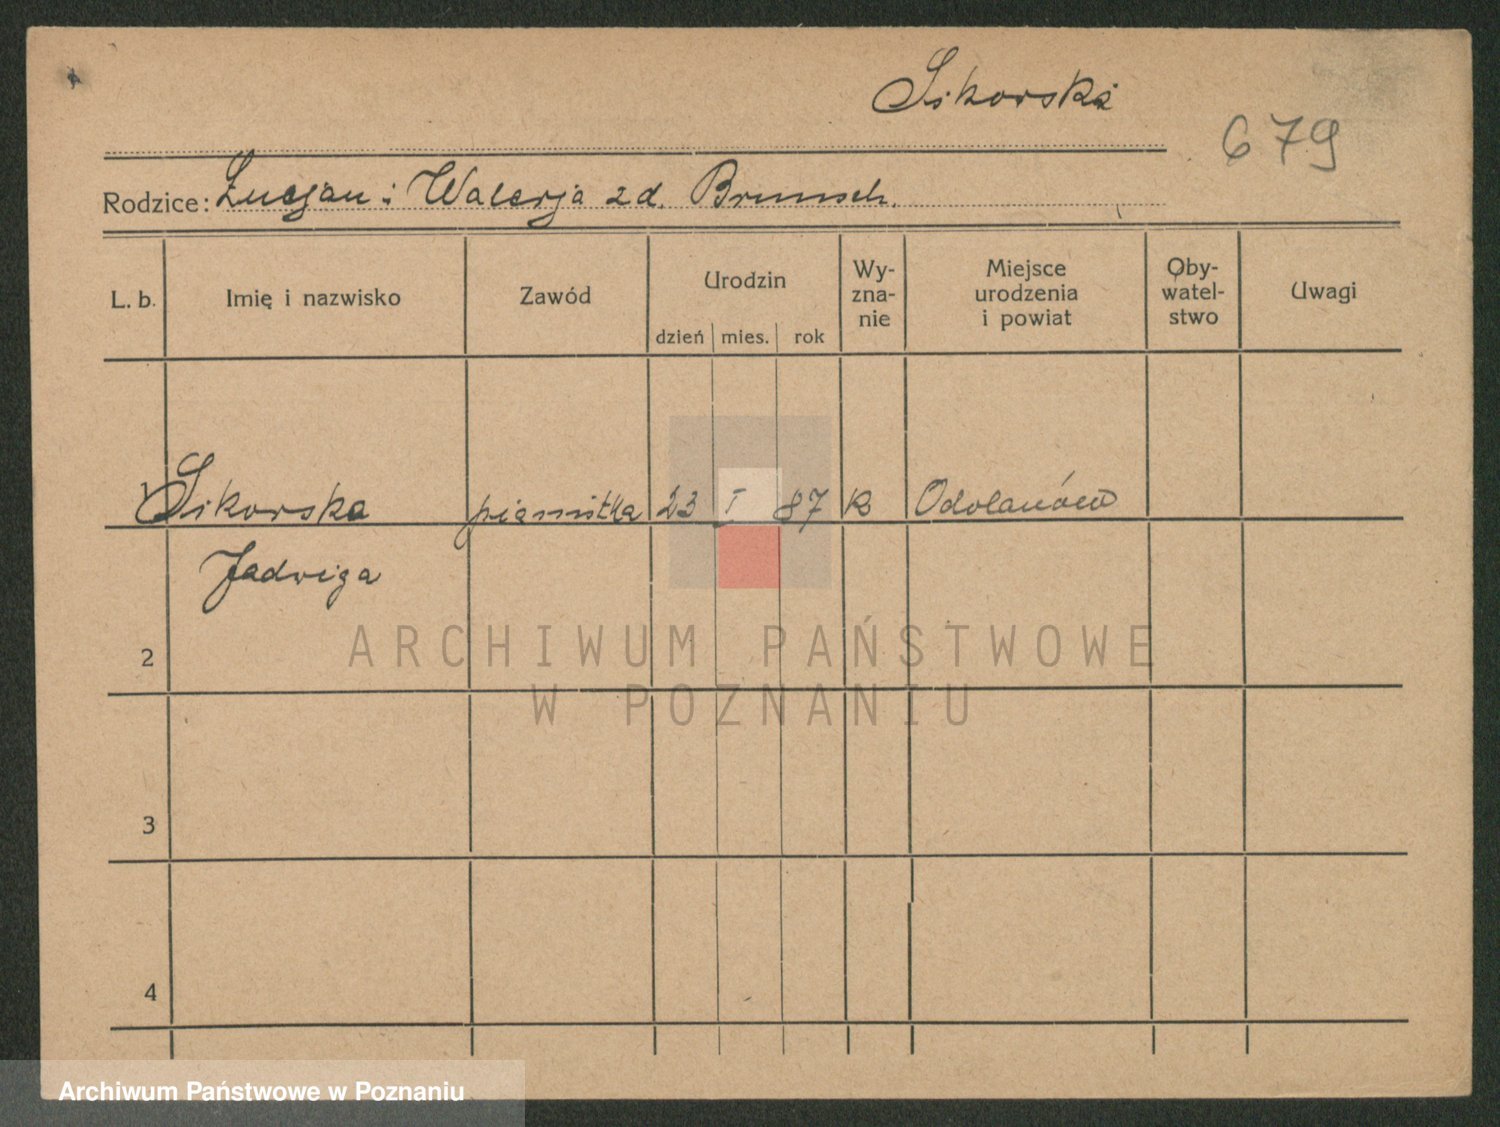 Sikorska
679
Rodzice: Łucjan i Walerja z d. Brunsch.
L. b. Imię i nazwisko Zawód Urodzin dzień mies. rok Wy-zna-nie Miejsce urodzenia i powiat Oby-watel-stwo Uwagi
1 Sikorska pianistka 23 I 87 k Odolanów
Jadwiga
2
ARCHIWUM PAŃSTWOWE
W POZNANIU
3
4
Archiwum Państwowe w Poznaniu